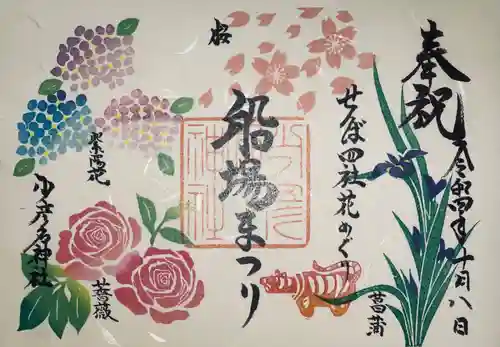 奉祝
令和四年十月八日
せんば四社花めぐり
菖蒲
桜
船場まつり
紫陽花
少彦名神社
薔薇